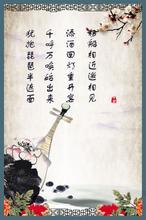 移船相近邀相见
添酒回灯重开宴
千呼万唤始出来
犹抱琵琶半遮面